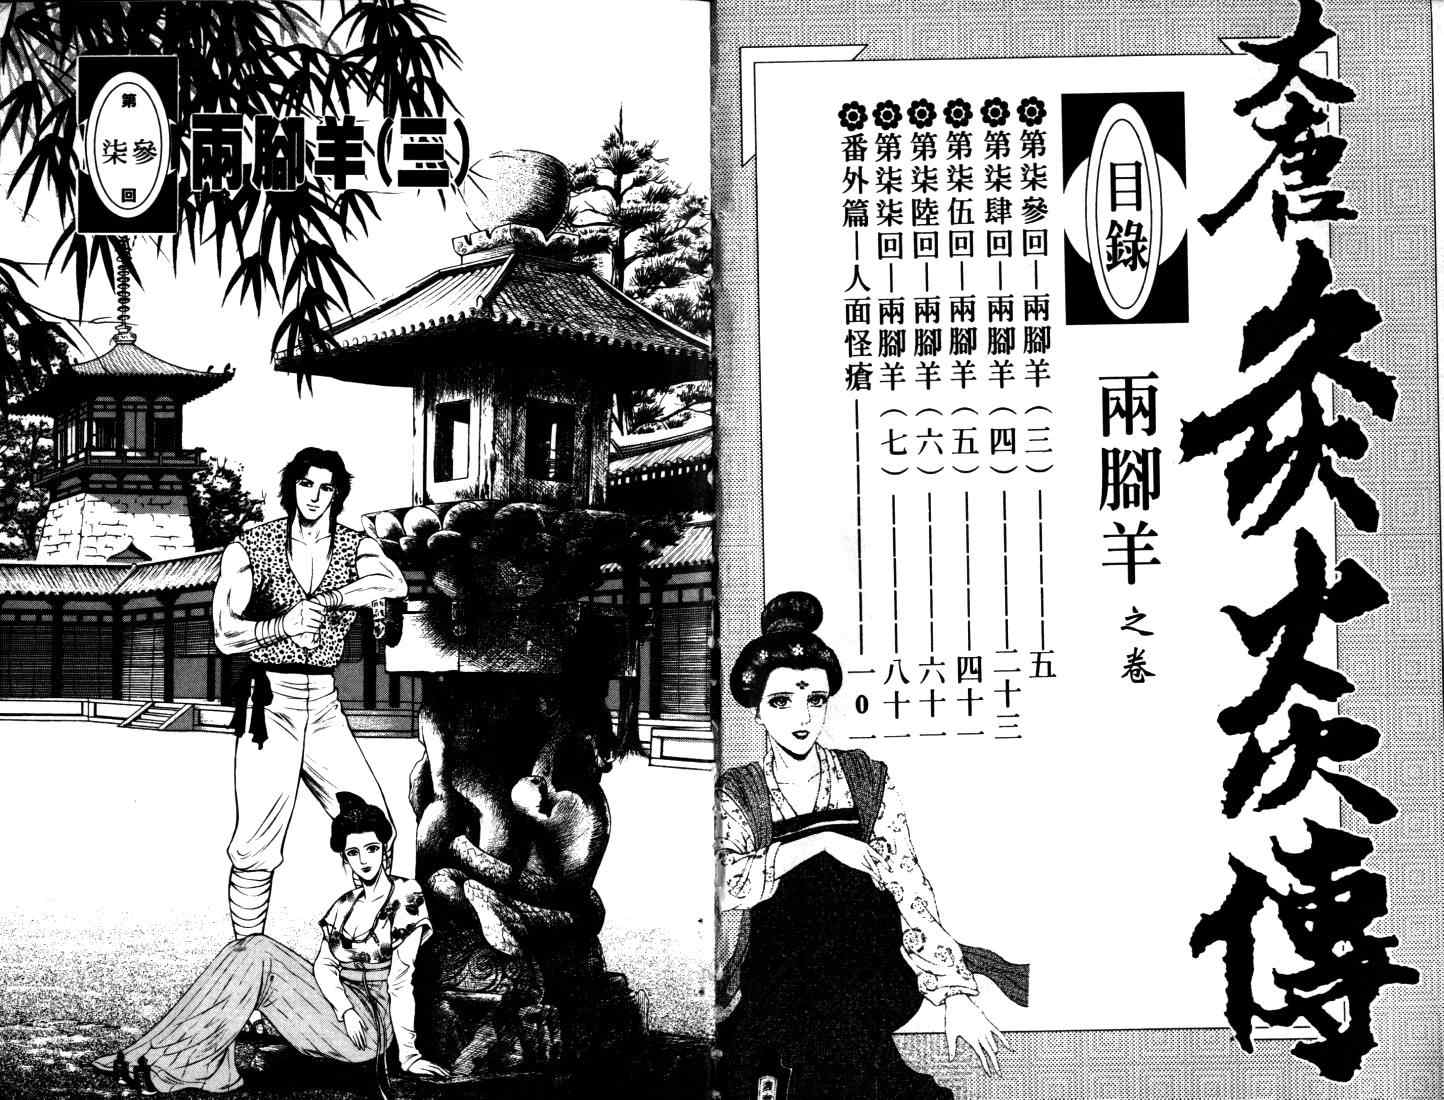 大唐炎炎傳
目錄
兩腳羊之卷
第柒參回－兩腳羊（三）－－－－－－五
第柒肆回－兩腳羊（四）－－－－－－二十三
第柒伍回－兩腳羊（五）－－－－－－四十一
第柒陸回－兩腳羊（六）－－－－－－六十一
第柒柒回－兩腳羊（七）－－－－－－八十一
番外篇－人面怪瘡－－－－－－－－－一0一
第柒參回
兩腳羊（三）